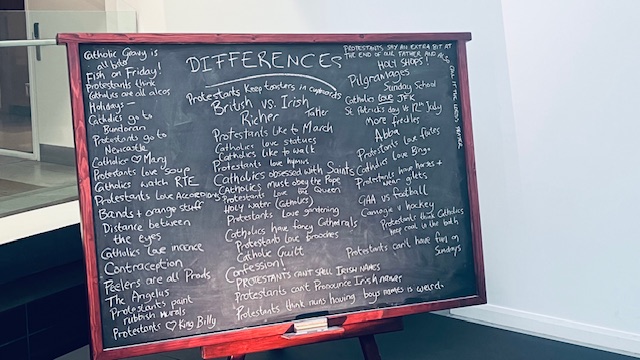 DIFFERENCES
Catholic Gravy is
all bisto
Fish on Friday!
Protestants think
Catholics are all alcos
Holidays -
Catholics go to
Bundoran
Protestants go to
Newcastle
Catholics ♡ Mary
Protestants love soup
Catholics watch RTE
Protestants Love Accordions
Bands + orange stuff
Distance between
the eyes
Catholics love incence
Contraception
Peelers are all Prods
The Angelus
Protestants paint
rubbish murals
Protestants ♡ King Billy
Protestants Keep toasters in cupboards
British vs. Irish
Richer
Taller
Protestants like to March
Catholics love statues
Catholics like to walk
Protestants love hymns
Catholics obsessed with Saints
Catholics must obey the Pope
Protestants love the Queen
Holy water (Catholics)
Protestants love gardening
Catholics have fancy Cathedrals
Protestants love brooches
Catholic Guilt
Confession!
PROTESTANTS CAN'T SPELL IRISH NAMES
Protestants can't Pronounce Irish names
Protestants think nuns having boys names is weird.
PROTESTANTS SAY AN EXTRA BIT AT
THE END OF OUR FATHER AND ALSO
CALL IT THE LORDS PRAYER
HOLY SHOPS!
Pilgramages
Sunday School
Catholics love JFK
St Patricks day vs 12th July
More freckles
Abba
Protestants love flutes
Catholics love Bingo
Protestants have horses +
wear gilets
GAA vs football
Camogie v hockey
Protestants think Catholics
keep coal in the bath
Protestants can't have fun on
Sundays